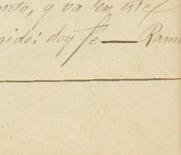 y va en este
doy fe — Ram